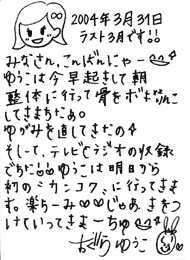 2004年3月31日
ラスト3月です!!
みなさん、こんばんにゃー
ゆうこは今早起きして朝
整体に行って骨をボキボキ
してきまちたぁ。
ゆがみを直してきたの
そして、テレビでラジオの収録
でちた ゆうこは明日から
初の"カンコク"に行ってきま
す。楽ちーみ じゃあ、きをつ
けていってきまーちゅ
ゆうこ